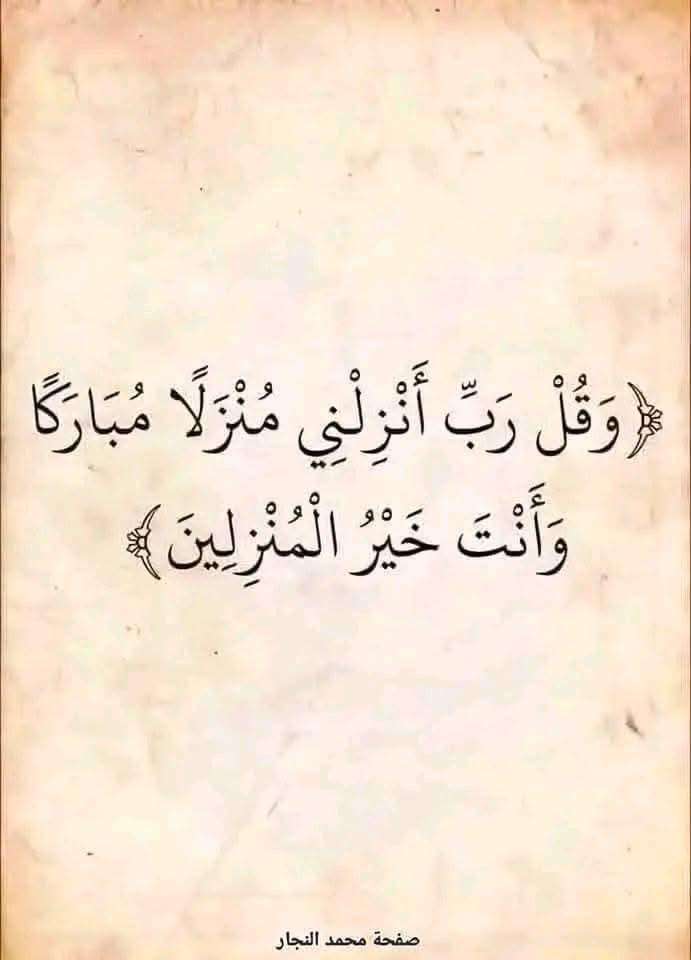 ﴿وَقُلْ رَبِّ أَنْزِلْنِي مُنْزَلًا مُبَارَكًا
وَأَنْتَ خَيْرُ الْمُنْزِلِينَ﴾
صفحة محمد النجار